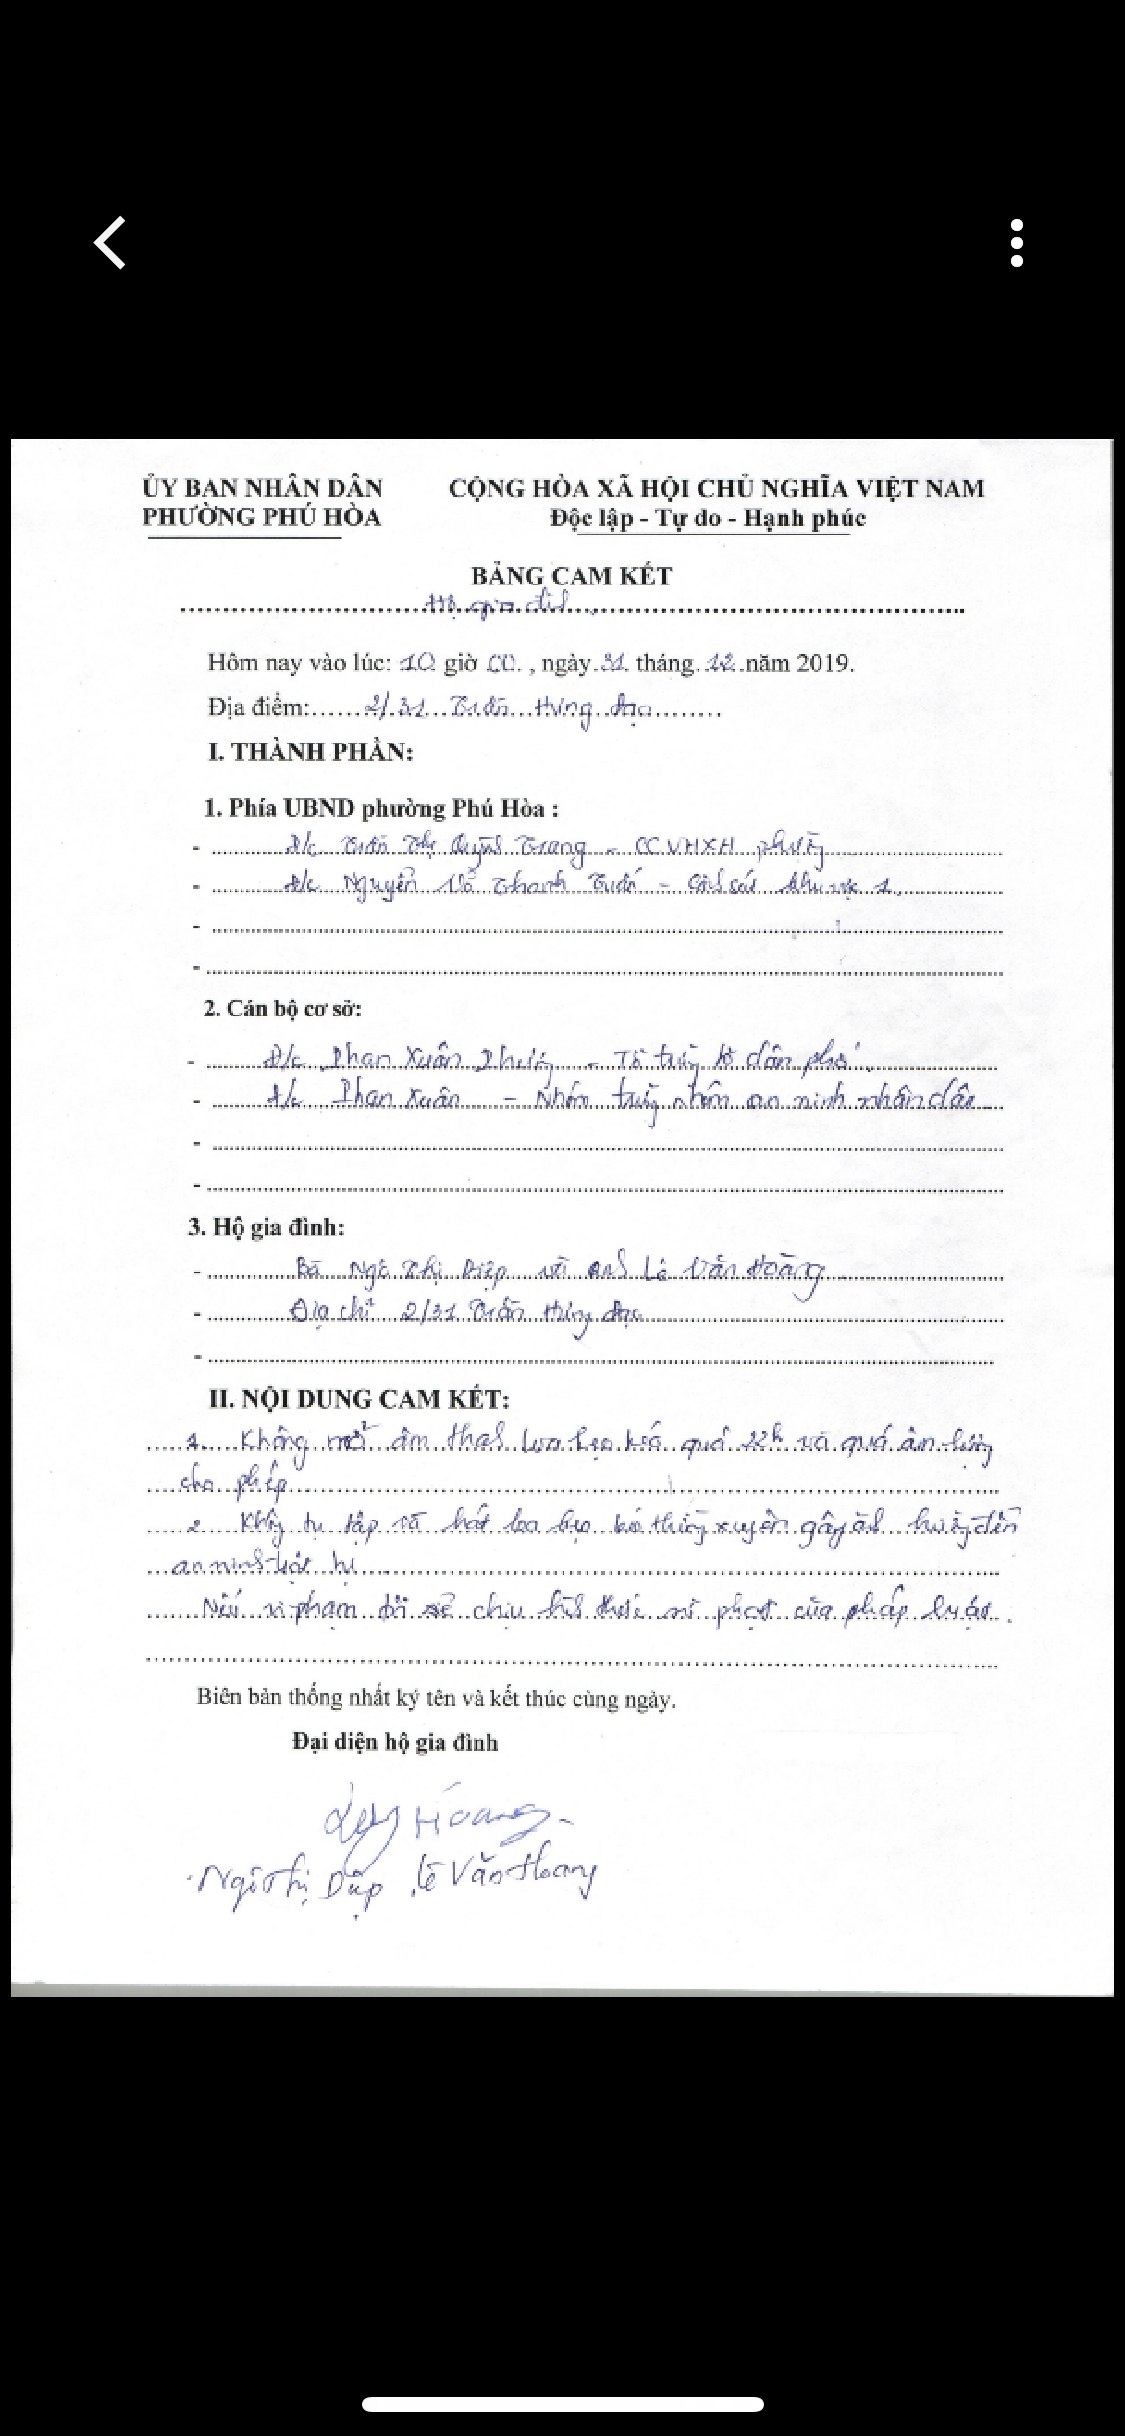 ỦY BAN NHÂN DÂN
PHƯỜNG PHÚ HÒA
CỘNG HÒA XÃ HỘI CHỦ NGHĨA VIỆT NAM
Độc lập - Tự do - Hạnh phúc
BẢNG CAM KẾT
Hộ gia đình
Hôm nay vào lúc: 10 giờ 00, ngày 31 tháng 12 năm 2019.
Địa điểm: 2/31 Trần Hưng Đạo
I. THÀNH PHẦN:
1. Phía UBND phường Phú Hòa :
- Đ/c Trần Thị Quỳnh Trang - CCVHXH phường
- Đ/c Nguyễn Võ Thanh Tuấn - Cảnh sát khu vực 1.
-
-
2. Cán bộ cơ sở:
- Đ/c Phan Xuân - Tổ trưởng tổ dân phố.
- Đ/c Phan Xuân - Nhóm trưởng nhóm an ninh nhân dân
-
-
3. Hộ gia đình:
- Bà Ngô Thị Diệp và anh Lê Văn Hoàng
- Địa chỉ 2/31 Trần Hưng Đạo
-
II. NỘI DUNG CAM KẾT:
1. Không mở âm thanh loa kẹo kéo quá 22h và quá âm lượng
cho phép
2. Không tụ tập và hát loa kẹo kéo thường xuyên gây ảnh hưởng đến
an ninh trật tự
Nếu vi phạm tôi sẽ chịu hình thức xử phạt của pháp luật.
Biên bản thống nhất ký tên và kết thúc cùng ngày.
Đại diện hộ gia đình
Hoang
Ngô Thị Diệp Lê Văn Hoàng